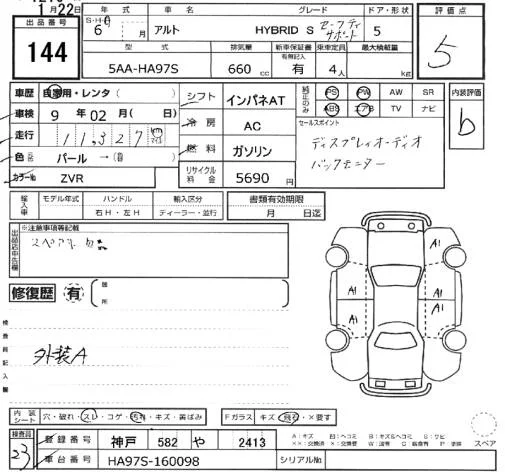 1月22日
出品番号
144
年式
S・H・R
6年
月
車名
アルト
グレード
HYBRID S セーフティサポート
ドア・形状
5
評価点
5
型式
5AA-HA97S
排気量
660 cc
新車保証書
有無記入
有
乗車定員
4人
最大積載量
kg
車歴
自家用・レンタ（　　）
車検
9年 02月（　日）
走行
11,327
色
パール →（　　）
カラーNo
ZVR
シフト
インパネAT
冷房
AC
燃料
ガソリン
リサイクル料金
5690円
純正のみ
PS PW AW SR
ABS エアB TV ナビ
セールスポイント
ディスプレイオーディオ
バックモニター
内装評価
b
輸入車
モデル年式
ハンドル
右H・左H
輸入区分
ディーラー・並行
書類有効期限
月　日迄
※注意事項等記載
出品店申告欄
修復歴 有
箇所
検査員記入欄
外装A
A1
A1 A1
A1 A1
内装シート
穴・破れ・スレ・コゲ・汚れ・キズ・黄ばみ
Fガラス
キズ・飛石・×要す
検査員
23
登録番号
神戸 582 や 2413
車台番号
HA97S-160098
シリアルNo
A：キズ
スペア